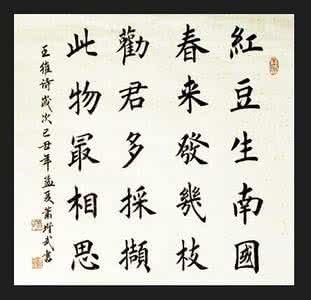 紅豆生南國
春來發幾枝
勸君多採擷
此物最相思
王維詩歲次己丑年孟夏蕭